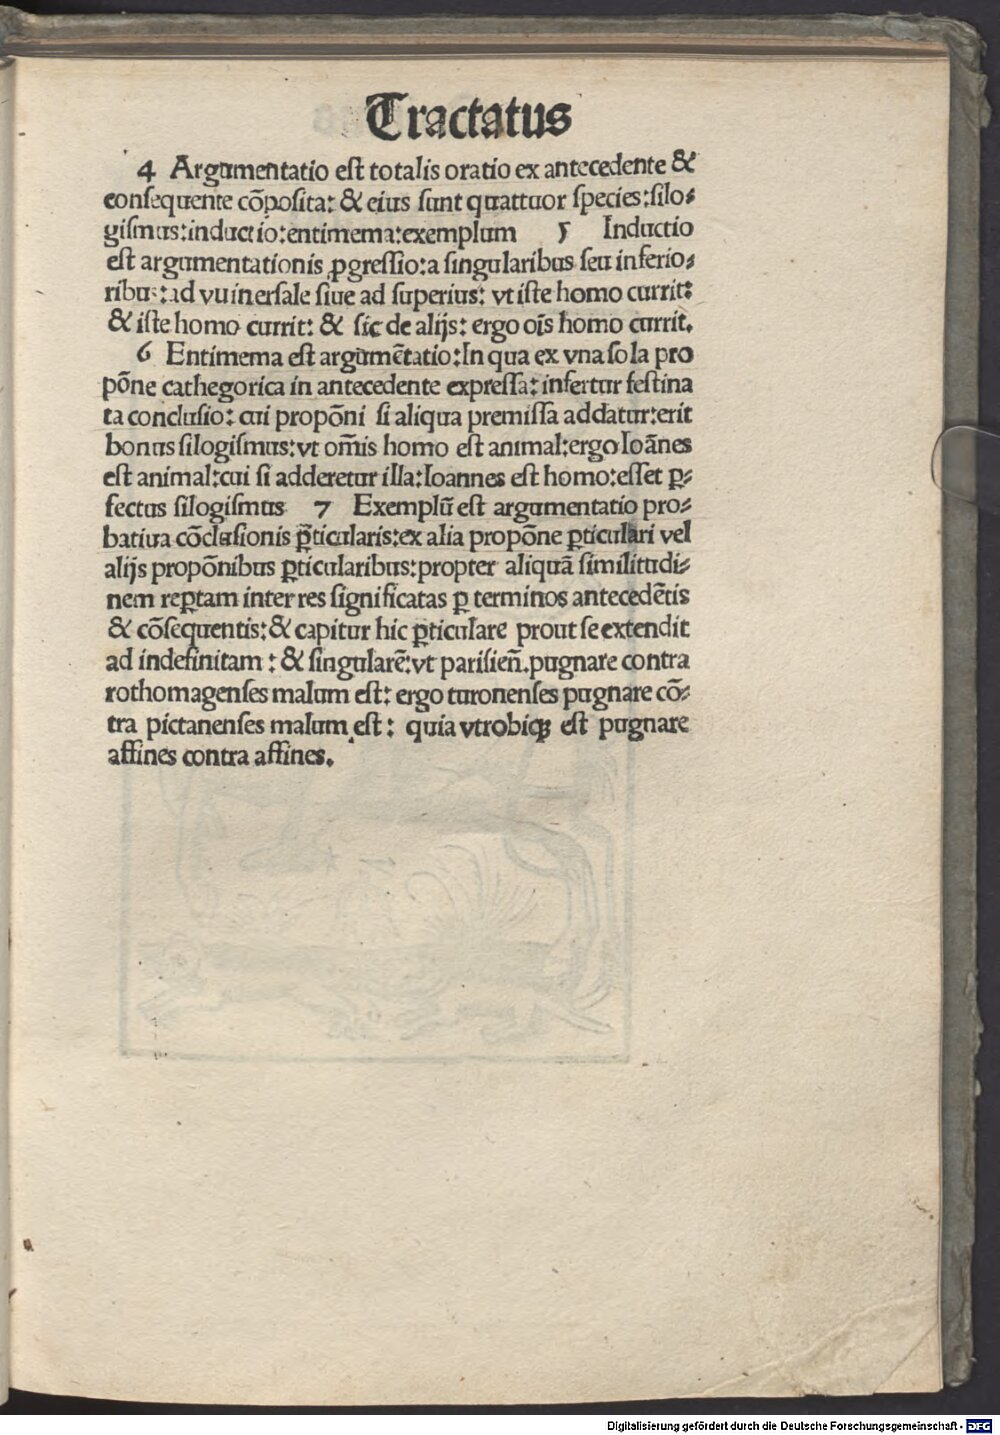 Tractatus
4 Argumentatio eſt totalis oratio ex antecedente &
conſequente cõpoſita: & eius ſunt quattuor ſpecies: ſilo⸗
giſmus: inductio: entimema: exemplum 5 Inductio
eſt argumentationis ꝓgreſſio: a ſingularibus ſeu inferio⸗
ribus: ad vuinerſale ſiue ad ſuperius: vt iſte homo currit:
& iſte homo currit: & ſic de alijs: ergo oĩs homo currit.
6 Entimema eſt argumẽtatio: In qua ex vna ſola pro
põne cathegorica in antecedente expreſſa: infertur feſtina
ta concluſio: cui propõni ſi aliqua premiſſa addatur: erit
bonus ſilogiſmus: vt om̃is homo eſt animal: ergo Ioãnes
eſt animal: cui ſi adderetur illa: Ioannes eſt homo: eſſet ꝑ⸗
fectus ſilogiſmus 7 Exemplũ eſt argumentatio pro⸗
batiua cõcluſionis ꝑticularis: ex alia propõne ꝑticulari vel
alijs propõnibus ꝑticularibus: propter aliquã ſimilitudi⸗
nem reꝑtam inter res ſignificatas ꝑ terminos antecedẽtis
& cõſequentis: & capitur hic ꝑticulare prout ſe extendit
ad indefinitam: & ſingularẽ: vt pariſieñ. pugnare contra
rothomagenſes malum eſt: ergo turonenſes pugnare cõ⸗
tra pictanenſes malum eſt: quia vtrobiqꝫ eſt pugnare
affines contra affines.
Digitalisierung gefördert durch die Deutsche Forschungsgemeinschaft - DFG